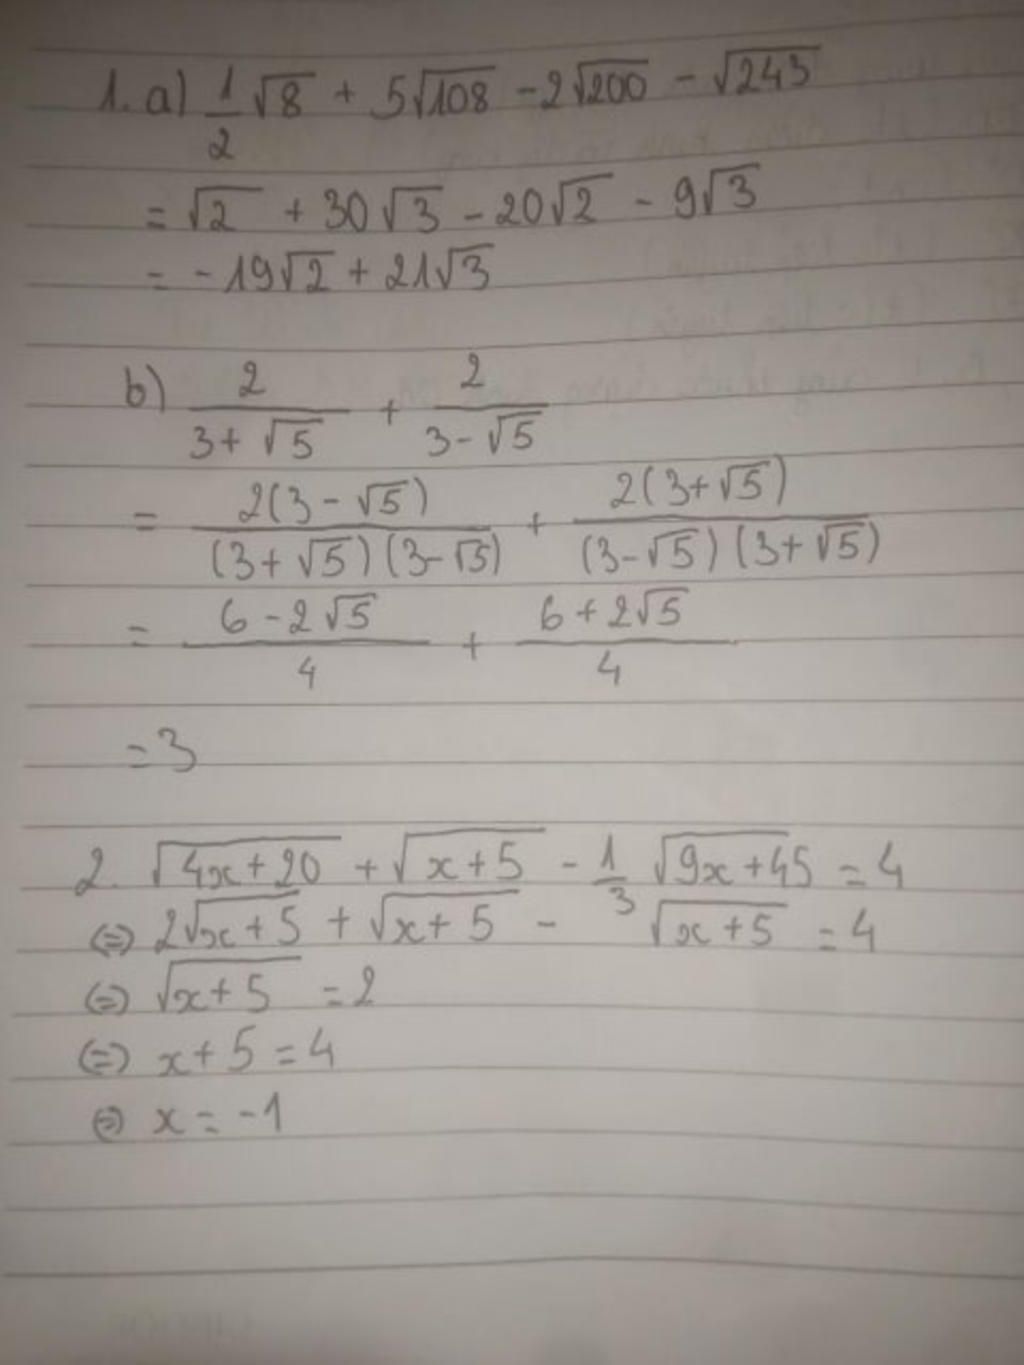 1. a) 1/2 √8 + 5√108 - 2√200 - √243
= √2 + 30√3 - 20√2 - 9√3
= -19√2 + 21√3
b) 2/(3+√5) + 2/(3-√5)
= 2(3-√5)/((3+√5)(3-√5)) + 2(3+√5)/((3-√5)(3+√5))
= (6-2√5)/4 + (6+2√5)/4
= 3
2. √(4x+20) + √(x+5) - 1/3 √(9x+45) = 4
⇔ 2√(x+5) + √(x+5) - √(x+5) = 4
⇔ √(x+5) = 2
⇔ x+5 = 4
⇔ x = -1